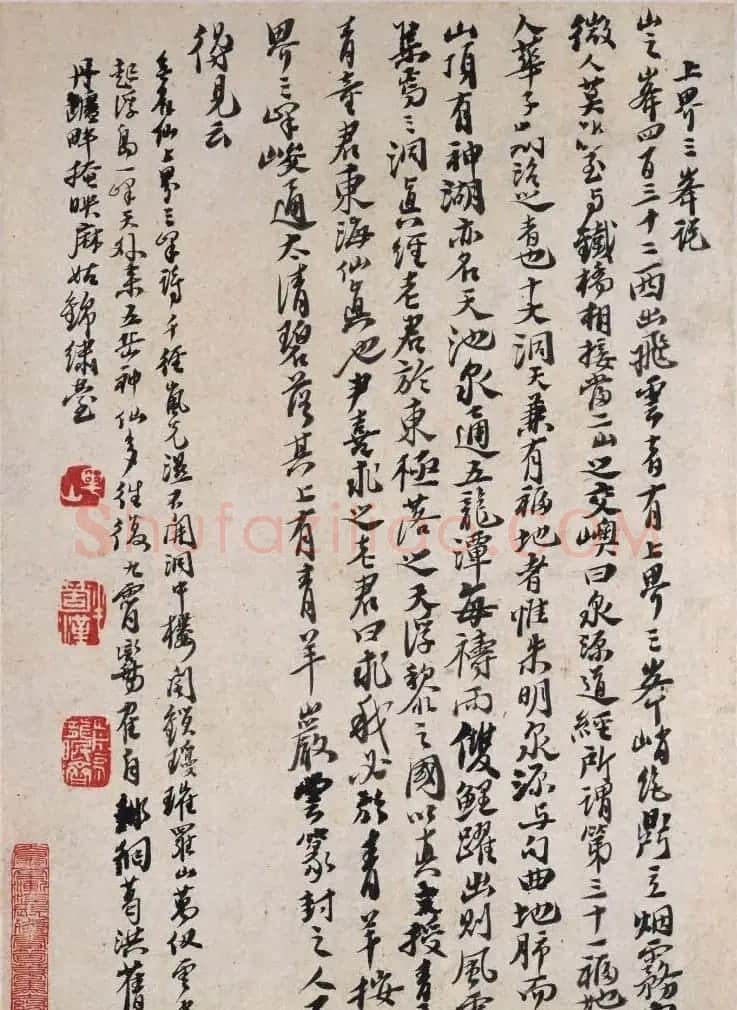 上界三峯說
山之峯四百三十二西出飛雲者有上界三峯峭絕鼎立烟霧
微人莫以登与鐵橋相接當二山之交嶼曰泉源道經所謂第三十一福地
人華子所治之者也十大洞天兼有福地者惟朱明泉源与句曲地肺而
山頂有神湖亦名天池泉通五龍潭每禱雨雙鯉躍出則風雲
三洞真經老君於東極蒼之天浮黎之國以真文授青
青童君東海仙真也尹喜求之老君曰求我必於青羊按
界三峯峻通太清碧落其上有青羊巖雲篆封之人不
得見云
仙上界三峯詩千徑嵐光濕不開洞中樓閣鎖瓊瑰羅山萬仞雲
起浮島一峰天外來五岳神仙多往復九霄鸞鶴自 葛洪舊
丹竈畔掩映麻姑錦繡臺
Shufaziliao.COM